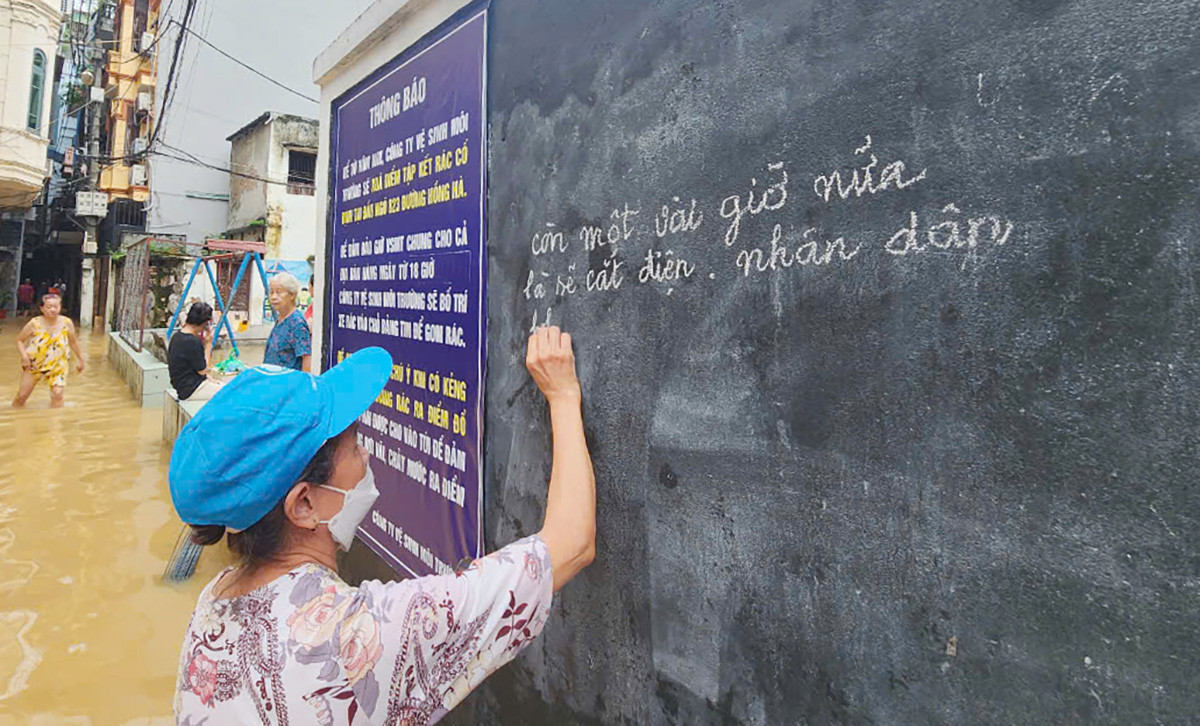 THÔNG BÁO
KỂ TỪ HÔM NAY, CÔNG TY VỆ SINH MÔI
TRƯỜNG SẼ XOÁ ĐIỂM TẬP KẾT RÁC CỐ
ĐỊNH TẠI ĐẦU NGÕ 823 ĐƯỜNG HỒNG HÀ.
ĐỂ ĐẢM BẢO GIỜ VSMT CHUNG CHO CẢ
ĐỊA BÀN HÀNG NGÀY TỪ 18 GIỜ
CÔNG TY VỆ SINH MÔI TRƯỜNG SẼ BỐ TRÍ
XE RÁC VÀO CHỖ BẢNG TIN ĐỂ GOM RÁC.
CHÚ Ý KHI CÓ KẺNG
RÁC RA ĐIỂM ĐỔ
ĐƯỢC CHO VÀO TÚI ĐỂ ĐẢM
RƠI VÃI, CHẢY NƯỚC RA ĐIỂM
CÔNG TY VỆ SINH MÔI
còn một vài giờ nữa
là sẽ cắt điện. nhân dân